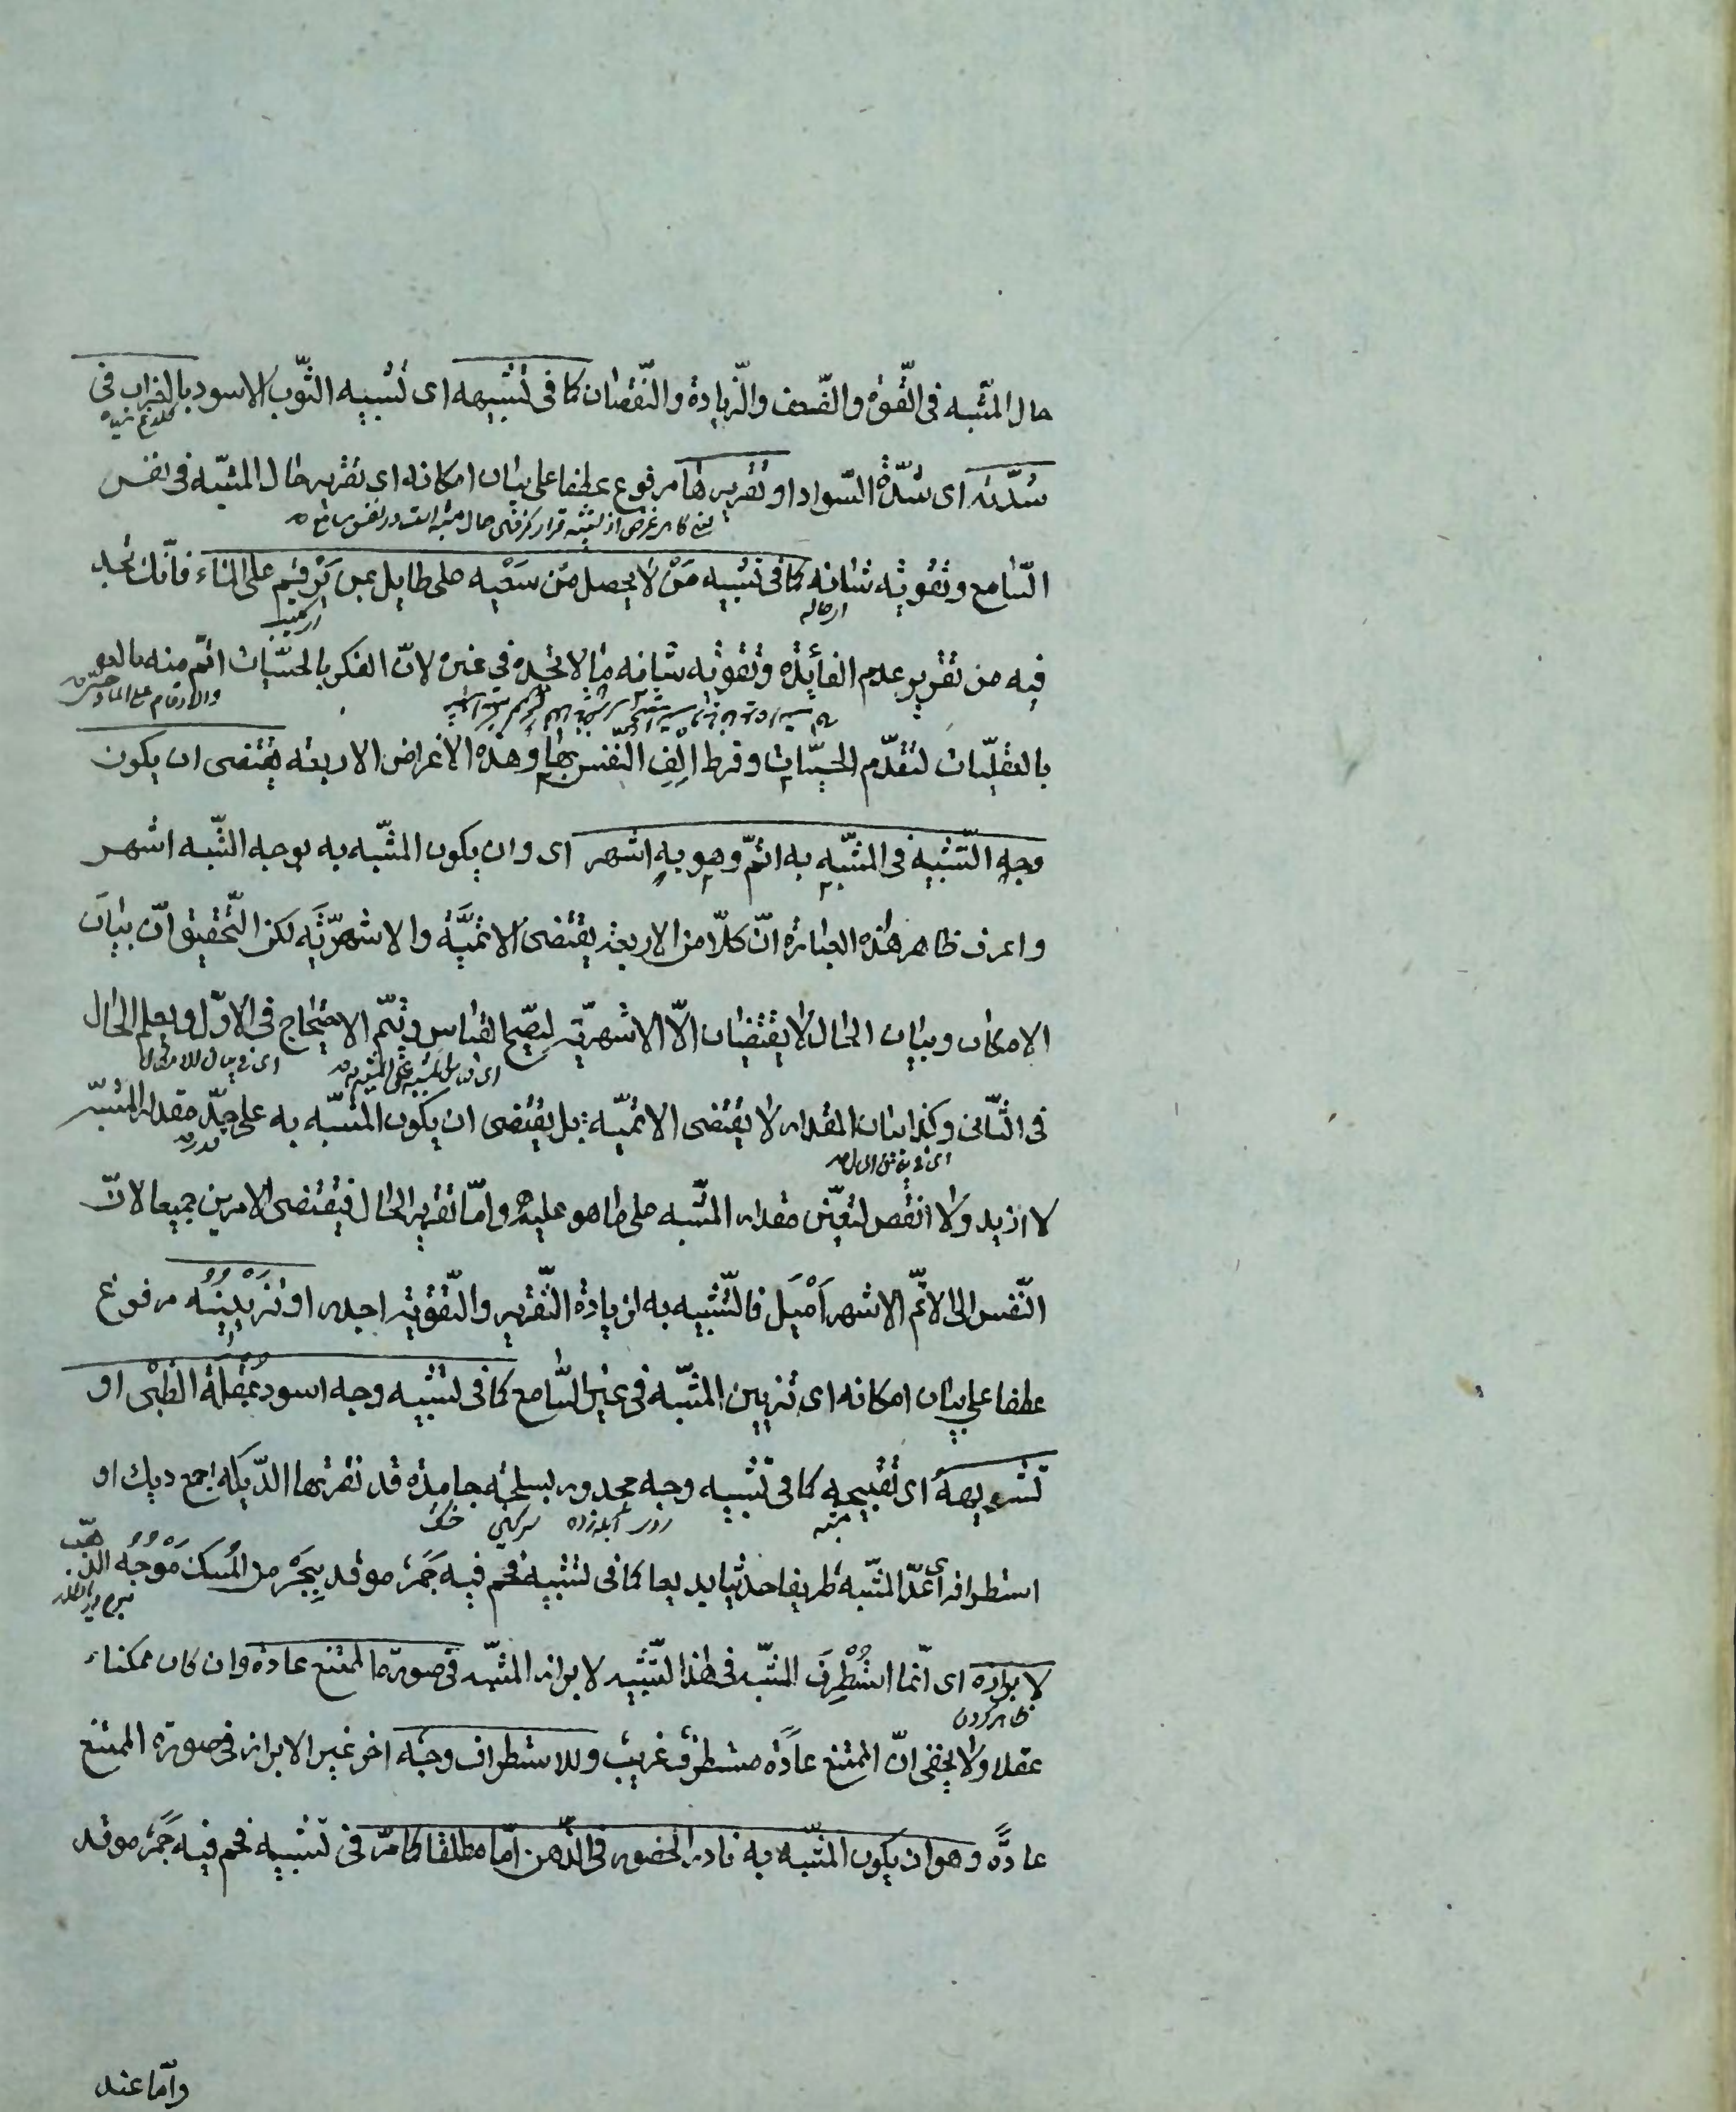 حال المشبه فى القوّة والضّعف والزّيادة والنّقصان كما فى تشبيهه اى تشبيه الثّوب الاسود بالغراب فى
شدّته اى شدّة السّواد او تقريرها مرفوع عطفا على بيان امكانه اى تقرير حال المشبّه فى نفس
السّامع وتقوية شانه كما فى تشبيه مَنْ لا يحصل من سَعْيه على طايل بمن يَرْقم على الماء فانّك تجد
فيه من تقرير عدم الفائدة وتقوية شانه ما لا تجده فى غيره لانّ الفكر بالحسّيات اتمّ منه
بالعقليّات لتقدّم الحسيّات وفرط الِفِ النّفس بها وهذه الاغراض الاربعة يقتضى ان يكون
وجه التّشبيه فى المشبّه به اتمّ وهو به اشهر اى وان يكون المشبّه به بوجه الشّبه اشهر
واعرف ظاهر هذه العبارة انّ كلّا من الاربعة يقتضى الاتميّة والاشهريّة لكن التّحقيق انّ بيان
الامكان وبيان الحال لا يقتضيان الّا الاشهريّة ليصّح القياس ويتمّ الاحتجاج فى الاوّل ويعلم الحال
فى الثّانى وكذا بيان المقدار لا يقتضى الاتميّة بل يقتضى ان يكون المشبّه به على حدّ مقدار المشبّه
لا ازيد ولا انقص لتعيّن مقدار المشّبه على ما هو عليه وامّا تقرير الحال فيقتضى الامرين جميعا لانّ
النّفس الى الاتمّ الاشهر اَمْيَل فالتّشبيه به لزيادة التّقرير والتّقوية اجدر او تزيينه مرفوع
عطفا على بيان امكانه اى تزيين المشبّه فى عين السّامع كما فى تشبيه وجه اسود بمُقْلة الظبْى او
تشويهه اى تقبيحه كما فى تشبيه وجه مجدور بسلحة جامدة قد نقرتها الدّيكة جمع ديك او
مشبه روى آبله‌زده سركين خشك
استطرافه اى عدّ المشبّه طريفا حديثا بديعا كما فى تشبيه فحم فيه جَمْر موقد بِبَحْر من المسك مَوْجُه الذّهب
لابرازه اى انّما استُطْرِفَ المشبّه فى هذا التّشبيه لابراز المشبّه فى صورة الممتنع عادة وان كان ممكنا
ظاهر كردن
عقلا ولا يخفى انّ الممتنع عادة مستطرف غريب وللاستطراف وجه اخر غير الابراز فى صورة الممتنع
عادةً وهو ان يكون المشبّه به نادر الحضور فى الذّهن امّا مطلقا كما مرّ فى تشبيه فحم فيه جَمْر موقد
وامّا عند